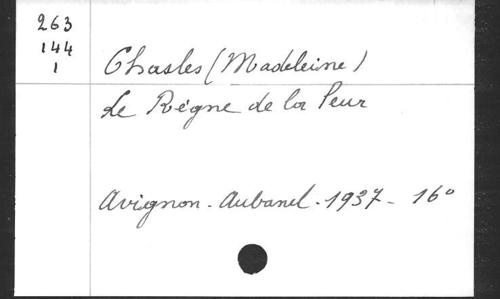 263
144
1
Chasles (Madeleine)
Le Règne de la Peur
Avignon - Aubanel - 1937 - 16°